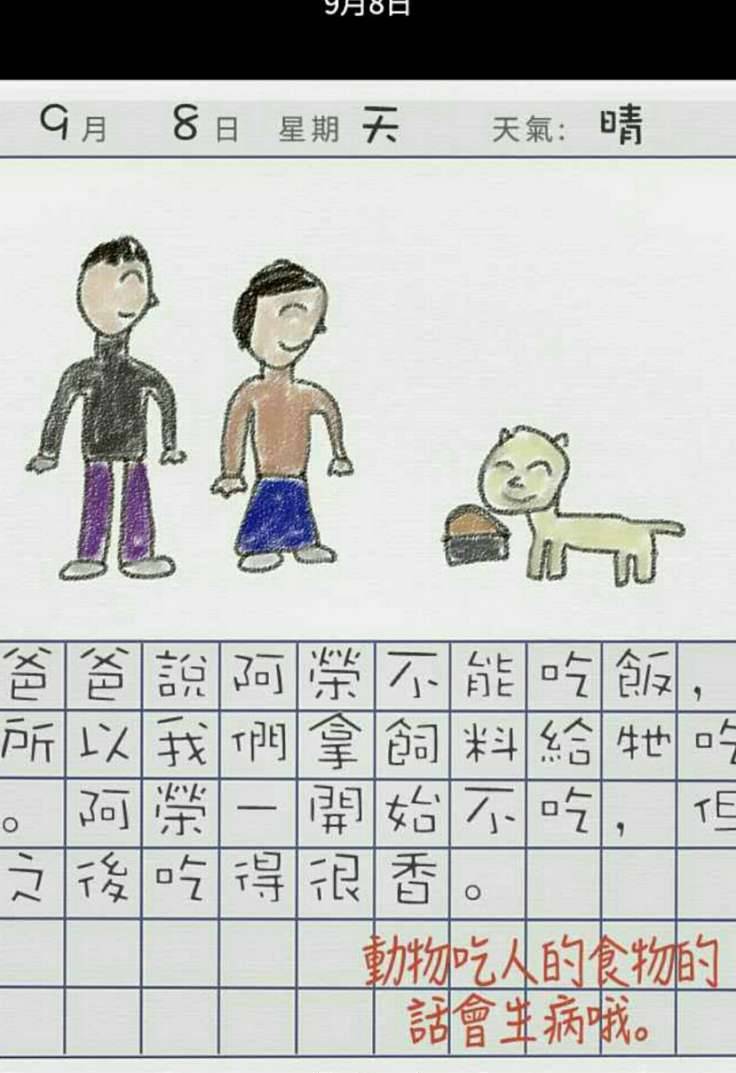 9月8日
9月 8日 星期天 天氣：晴
爸爸說阿榮不能吃飯，
所以我們拿飼料給牠吃
。阿榮一開始不吃，但
之後吃得很香。
動物吃人的食物的
話會生病哦。